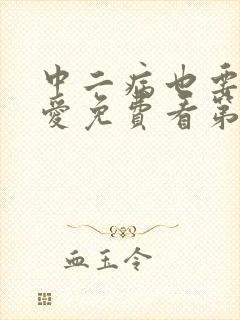 中二病也要
爱免费看第
血玉令